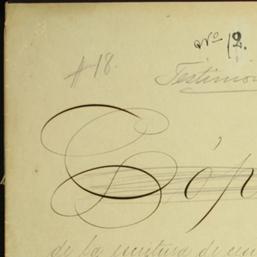 Nº 12.
#18.
Testimon
Cóp
de la escritura de cen